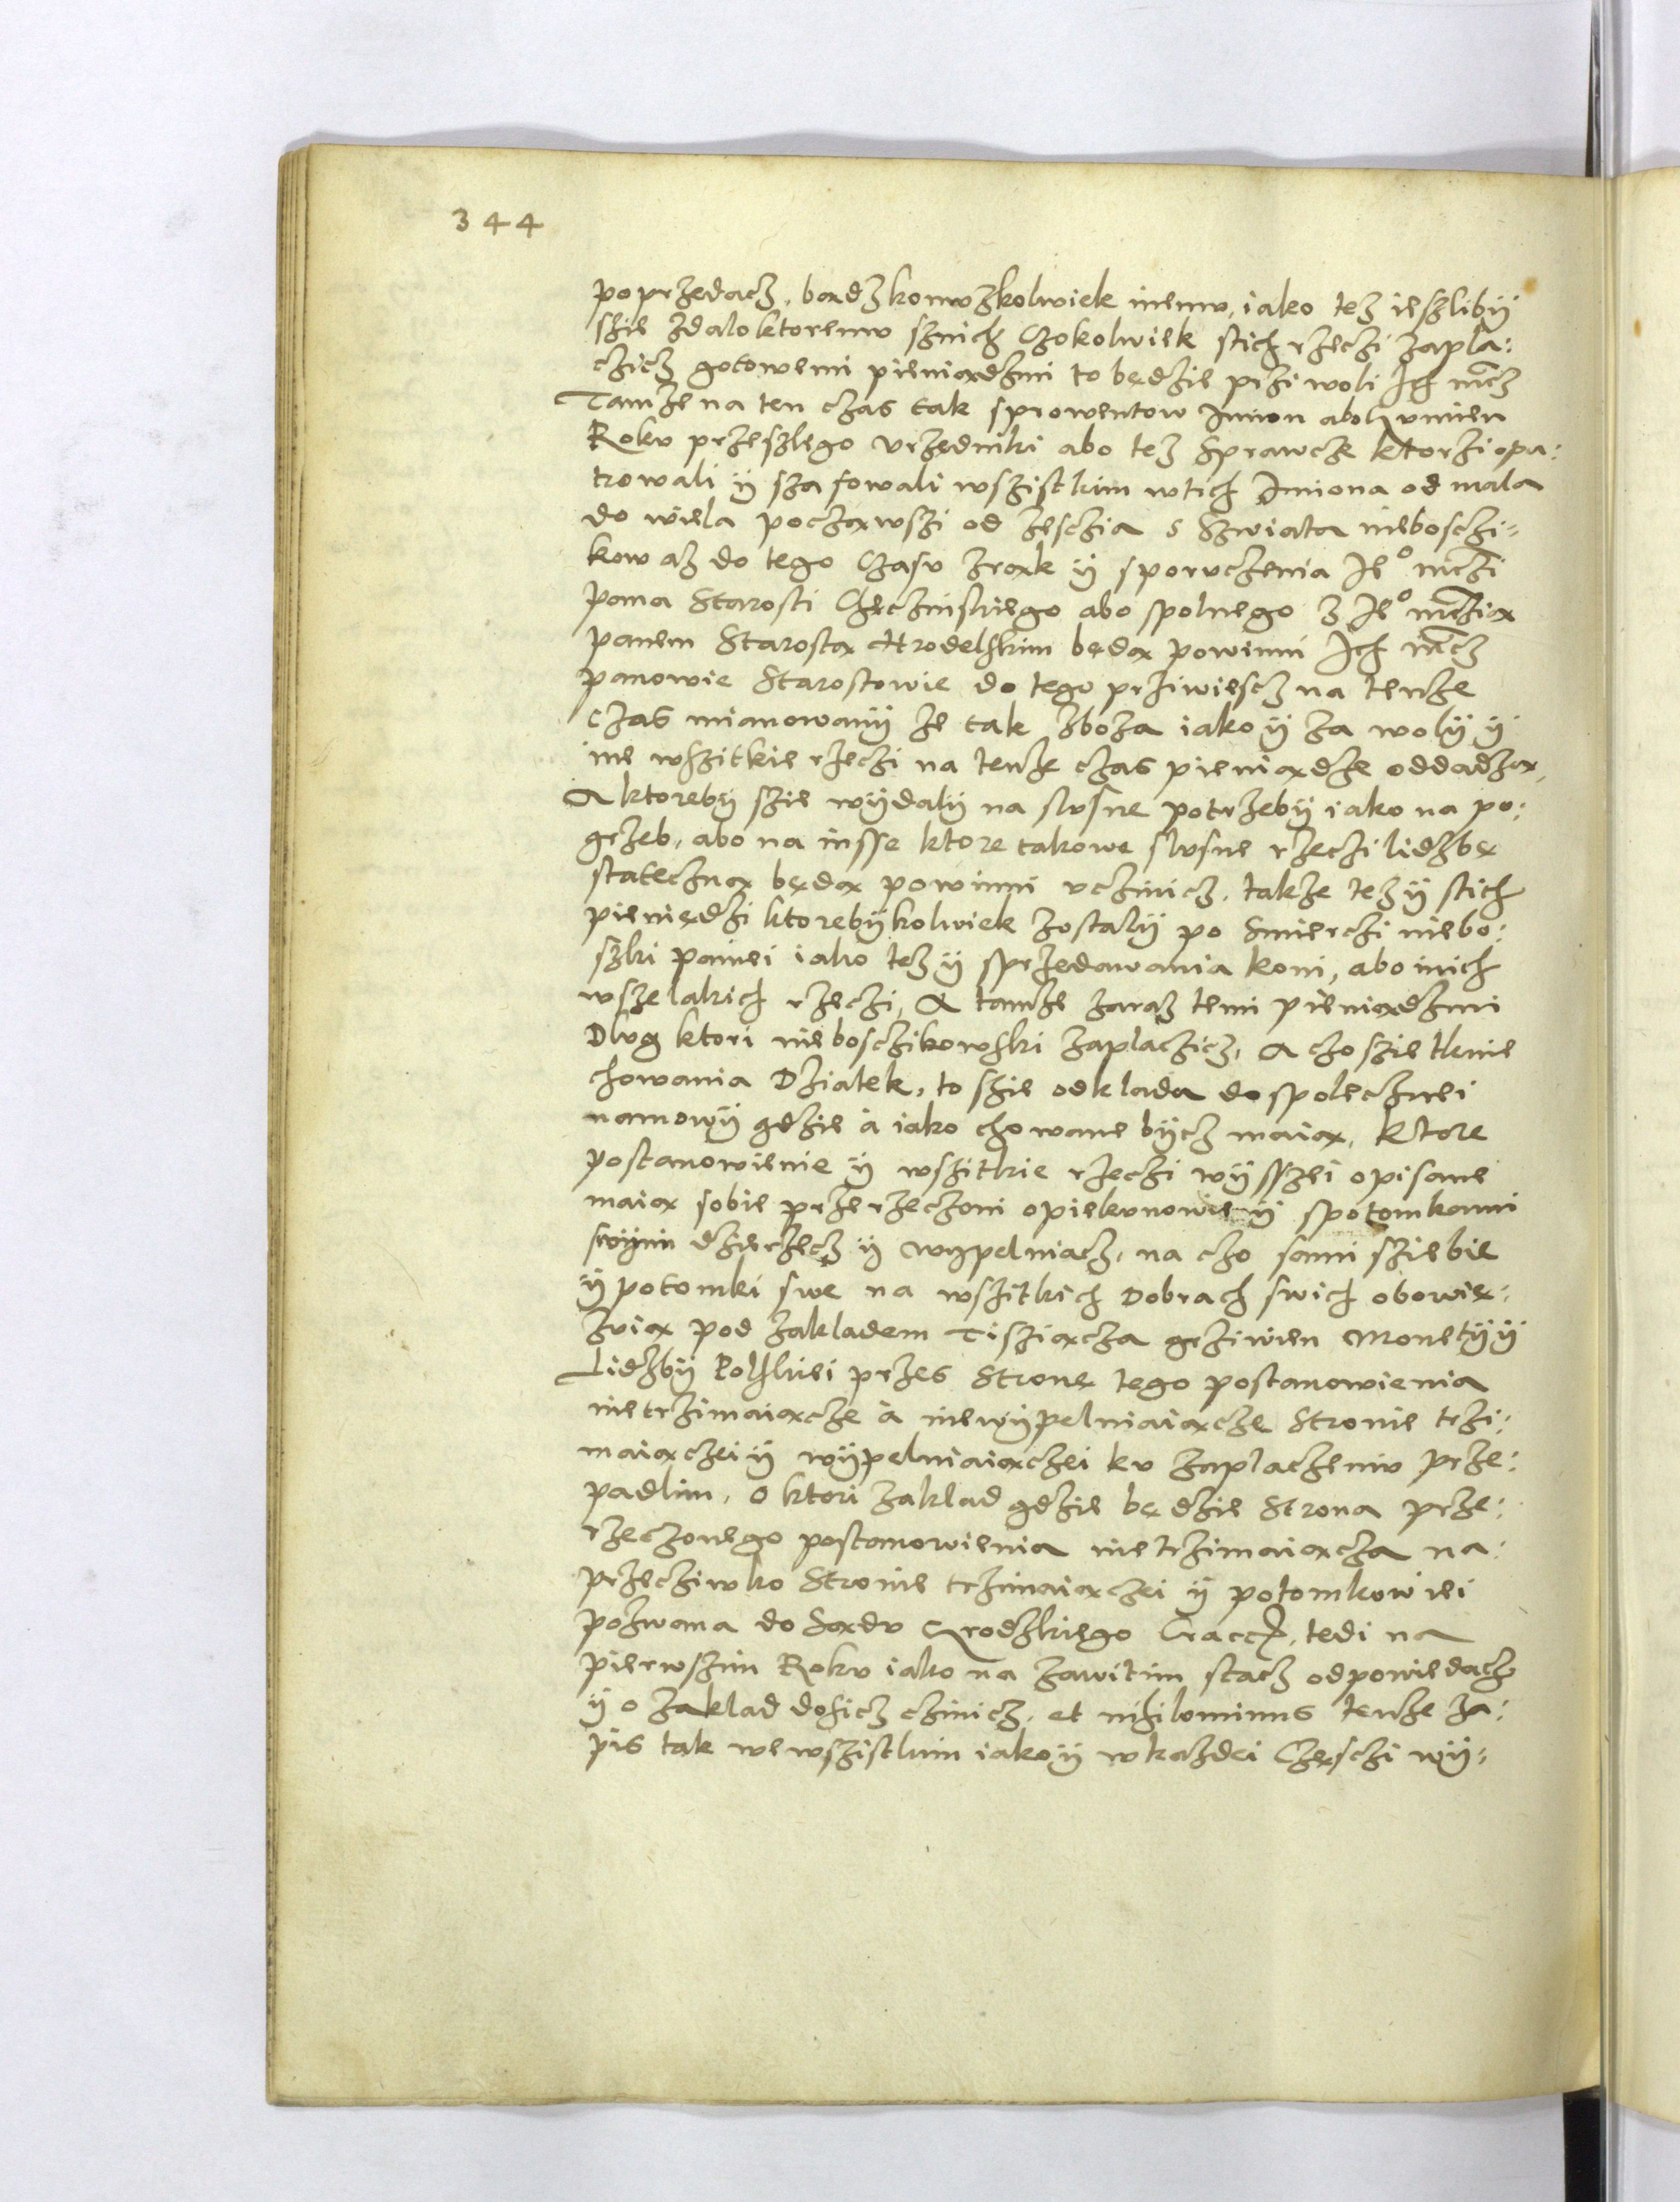 344
poprzedacz, bądzkomuzkolwiek inemu, iako tez ieszlibÿ
szie zdalo ktoremu sznich Czokolwiek stich rzeczi zapla:
czicz gotowemi pieniądzmi to będzie przi woli Ich mcz
Tamze na ten czas tak sprowentow Imion abo gumien
Roku przeszlego Vrzedniki abo tez Sprawcze ktorzi opa:
trowali ÿ szafowali wszistkim wtich Imiona od mala
do wiela począwszi od zesczia s Szwiata niebosczi=
kow az do tego Czasu zrąk ÿ sporuczenia Ie° mczi
pana Starosti Chęczinskiego abo spolnego z Ie° mczią
panem Starostą Hrodelskim będą powinni Ich mcz
panowie Starostowie do tego prziwiescz na tenze
czas mianowanÿ ze tak zboza iako ÿ za wolÿ ÿ
ine wszitkie rzeczi na tenze czas pieniądze oddadzą,
A ktorebÿ szie wÿdalÿ na slusne potrzebÿ iako na po:
grzeb, abo na insse ktore takowe slusne rzeczi lidzbę
stateczną będą powinni uczinicz, takze tez ÿ stich
pieniędzi ktorebÿkolwiek zostalÿ po Smierczi niebo:
szki paniei iako tez ÿ sprzedawania koni, abo inich
wszelakich rzeczi, A tamze zaraz temi pieniądzmi
Dlug ktori nieboszczikowski zaplaczicz, A czo szie tknie
chowania Dziatek, to szie odklada do spolecznei
namowÿ gdzie à iako chowane bÿcz maią, ktore
postanowienie ÿ wszitkie rzeczi wÿsszei opisane
maią sobie przerzeczoni opiekunowie ÿ spotomkami
swÿmi dzierzecz ÿ wypelniacz, na czo sami sziebie
ÿ potomki swe na wszitkich Dobrach swich obowię:
zuią pod zakladem Tisziącza grziwien Monetÿ ÿ
Lidzbÿ Polskiei przes Stronę tego postanowienia
nietrzimaiącze à niewÿpelniaiącze Stronie trzi:
maiączei ÿ wÿpelniaiączei ku zaplaczeniu prze:
padlim, o ktori zaklad gdzie będzie Strona prze:
rzeczonego postanowienia nietrzimaiącza na:
przecziwko Stronie trzimaiączei ÿ potomkow iei
pozwana do Sądu Grodzkiego Cracc, tedi na
pierwszim Roku iako na zawitim stacz odpowiedacz
ÿ o zaklad dosicz czinicz, et nihilominus tenze za:
pis tak wewszistkim iako ÿ wkazdei Częsczi wÿ=